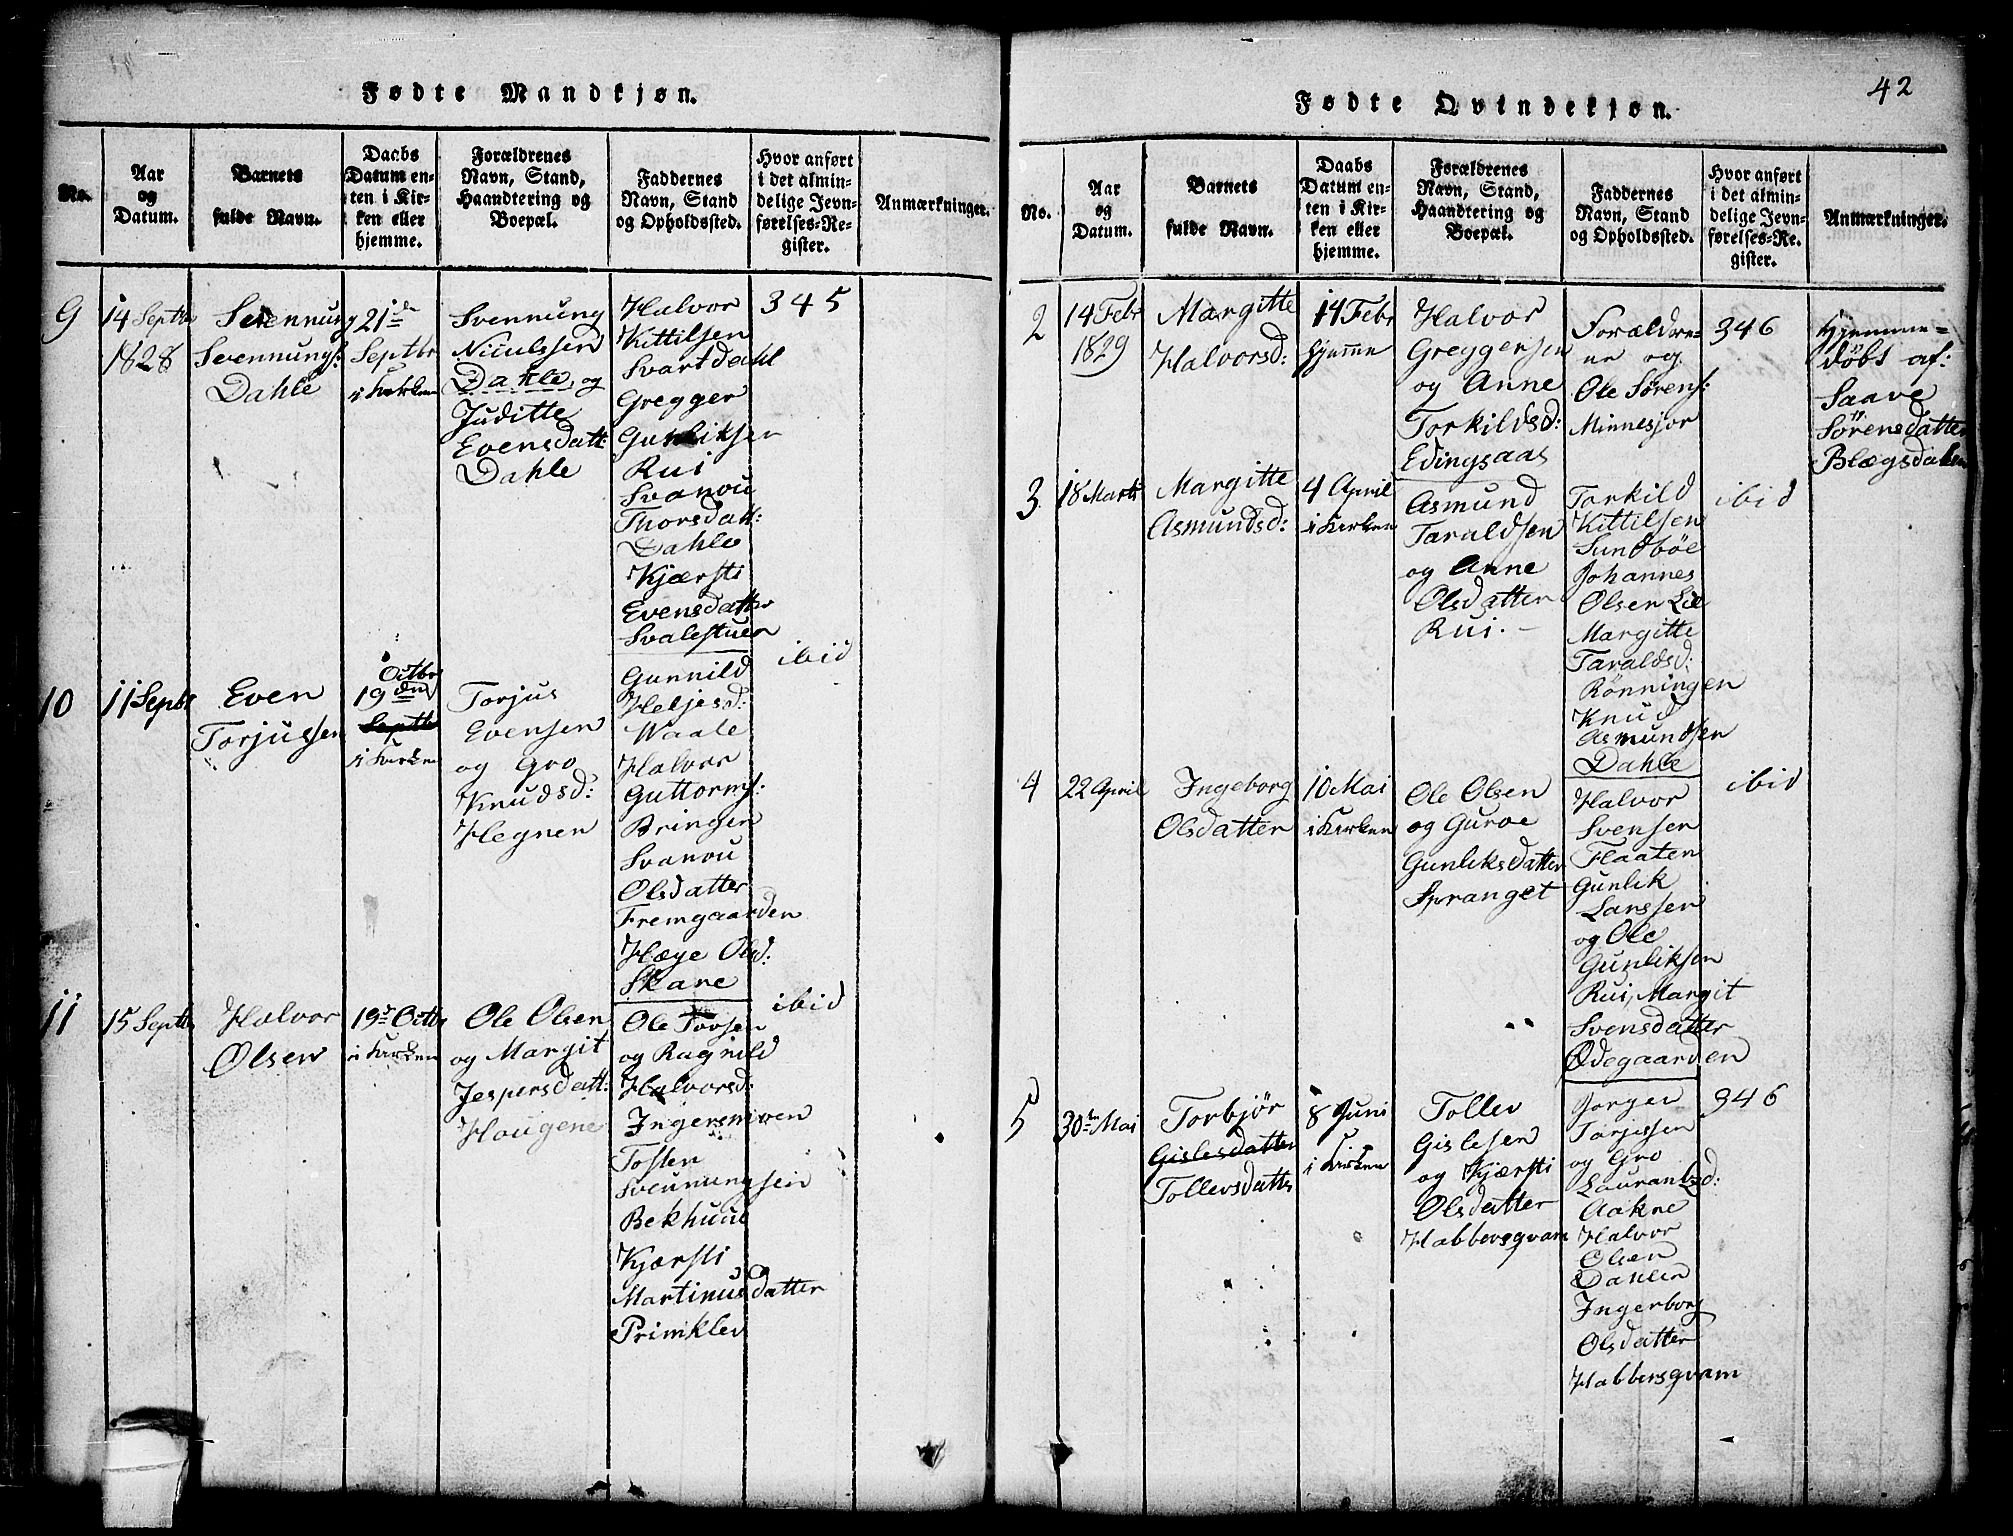 Fødte Mandkjøn.
No.
Aar
og
Datum.
Barnets
fulde Navn.
Daabs
Datum en-
ten i Kir-
ken eller
hjemme.
Forældrenes
Navn, Stand,
Haandtering og
Boepæl.
Faddernes
Navn, Stand
og Opholdssted.
Hvor anført
i det almin-
delige Jevn-
førelses-Re-
gister.
Anmærkninger.
9
14 Septbr
1828
Svennung
Svennungs:
Dahle
21de
Septbr
i Kirken
Svennung
Niculssen
Dahle, og
Juditte
Evensdatt:
Dahle
Halvor
Kittilsen
Svartdahl
Gregger
Gunliksen
Rui
Svanou
Thorsdatt:
Dahle
Kjærsti
Evensdatter
Svalestuen
345
10
11 Septbr
Even
Torjussen
Octbr
19den
Septbr
i Kirken
Torjus
Evensen
og Gro
Knudsd:
Hegnen
Gunnild
Heljesd:
Waale
Halvor
Guttorms:
Bringen
Svanou
Olsdatter
Fremgaarden
Hæge Olsd:
Skare
ibid
11
15 Septbr
Halvor
Olsen
19de Octbr
i Kirken
Ole Olsen
og Margit
Jespersdatt:
Hougene
Ole Tovsen
og Ragnild
Halvorsd:
Ingersmoen
Tosten
Svennungsen
Bekhuus
Kjærsti
Martinusdatter
Primklev
ibid
42
Fødte Qvindekjøn.
No.
Aar
og
Datum.
Barnets
fulde Navn.
Daabs
Datum en-
ten i Kir-
ken eller
hjemme.
Forældrenes
Navn, Stand,
Haandtering og
Boepæl.
Faddernes
Navn, Stand
og Opholdssted.
Hvor anført
i det almin-
delige Jevn-
førelses-Re-
gister.
Anmærkninger.
2
14 Febr
1829
Margitte
Halvorsd:
14 Febr
hjemme
Halvor
Greggersen
og Anne
Torkildsd:
Edingsaas
Forældre-
ne og
Ole Sørens:
Minnesjor
346
Hjemme-
døbt af:
Saave
Sörensdatter
Blægsdalen
3
18 Marts
Margitte
Asmundsd:
4 April
i Kirken
Asmund
Taraldsen
og Anne
Olsdatter
Rui.
Torkild
Kittilsen
Sundbøe
Johannes
Olsen Lie
Margitte
Taraldsd:
Rönningen
Knud
Asmundsen
Dahle
ibid
4
22 April
Ingeborg
Olsdatter
10 Mai
i Kirken
Ole Olsen
og Guroe
Gunliksdatter
Spranget
Halvor
Svensen
Flaaten
Gunlik
Larssen
og Ole
Gunliksen
Rui, Margit
Svensdatter
Ødegaarden
ibid
5
30te Mai
Torbjør
Gislesdatter
Tollevsdatter
8 Juni
i Kirken
Tollev
Gislesen
og Kjærsti
Olsdatter
Habbersqvam
Jørgen
Torjussen
og Gro
Laurantzd:
Aakne
Halvor
Olsen
Dahlen
Ingerborg
Olsdatter
Habbersqvam
346